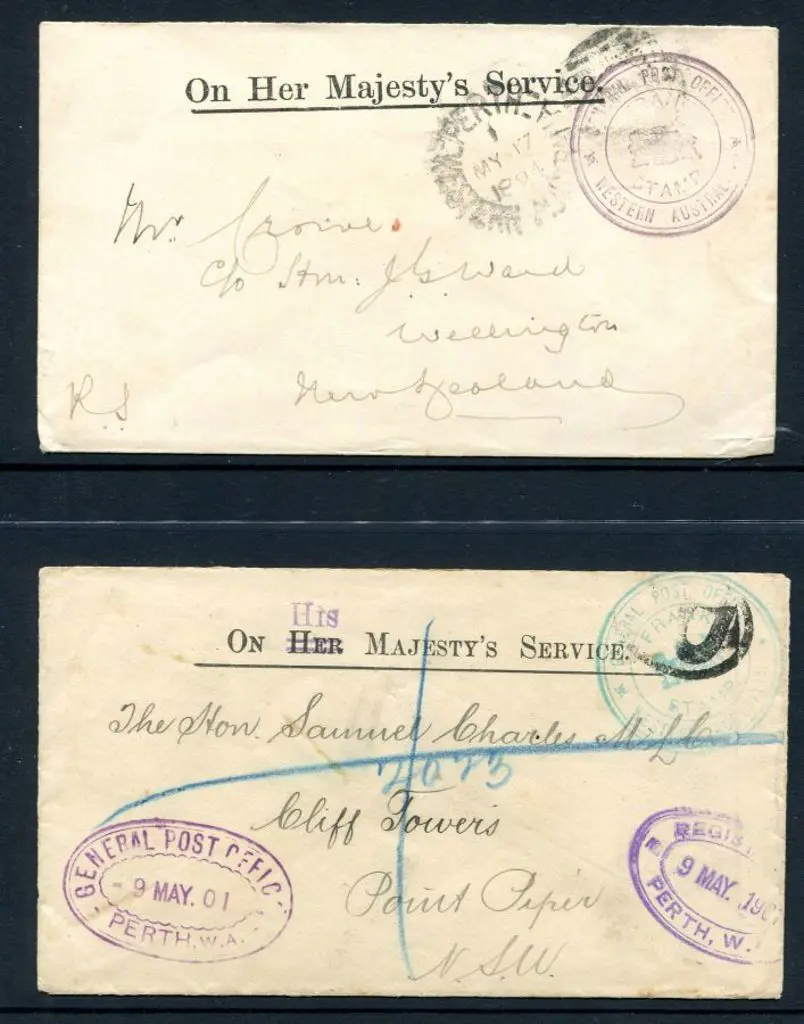 On Her Majesty's Service.
GENERAL POST OFFICE
STAMP
WESTERN AUSTRAL
PERTH
1
MY 17
Mr.
c/o Hon: J G Ward
Wellington
New Zealand
R.S
His
ON HER MAJESTY'S SERVICE.
GENERAL POST OFFI
FRANK
STAMP
The Hon. Samuel Charles M.L.C.
Cliff Towers
Point Piper
N.S.W.
GENERAL POST OFFIC
9 MAY. 01
PERTH, W.A.
REGIS
9 MAY. 190
PERTH, W.